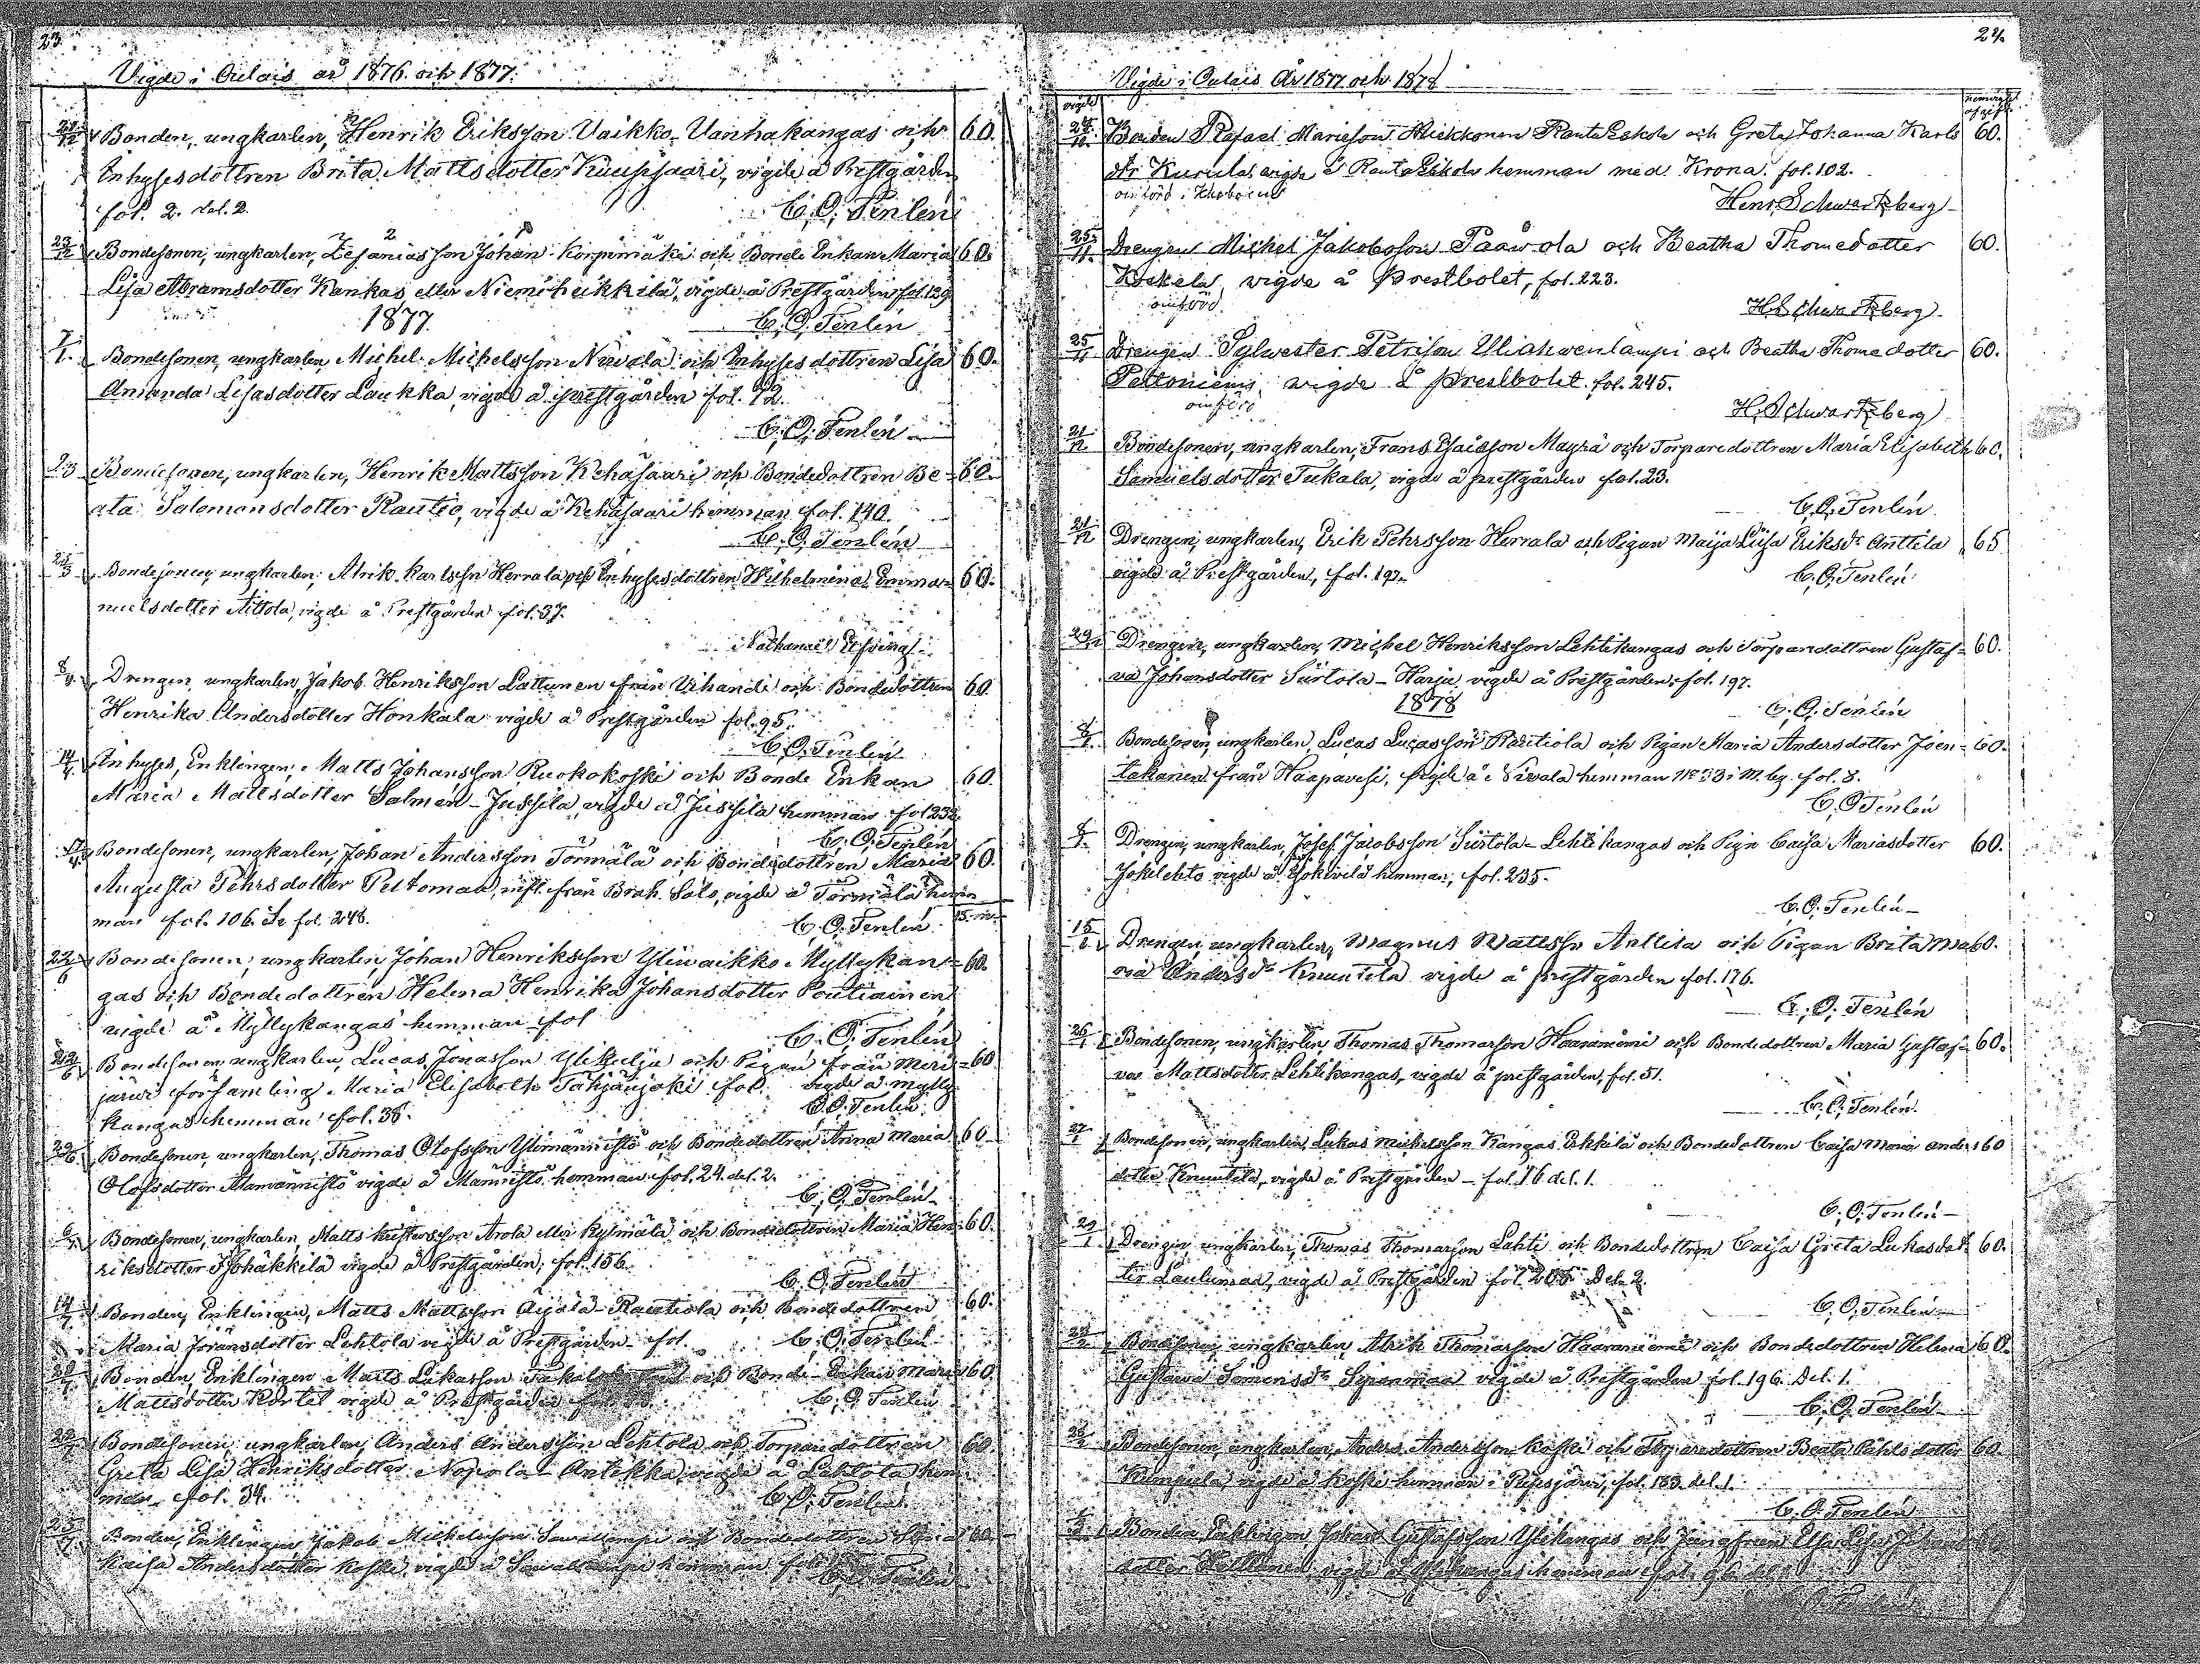 23.
Vigde i Oulais år 1876 och 1877.
21/12 Bonden, ungkarlen, Henrik Eriksson Vaikko-Vanhakangas och 60.
Inhysesdottren Brita Mattsdotter Kuusisaari, vigde å Prestgården
fol. 2. del. 2. C. O. Tenlén
23/12 Bondesonen, ungkarlen, Johan Korpimäki och Bonde Enkan Maria 60.
Lisa Abramsdotter Kankas eller Niemiheikkilä, vigde å Prestgården fol. 129
1877. C. O. Tenlén
7/1. Bondesonen, ungkarlen Michel Michelsson Nivala och Inhyses dottren Lisa 60.
Amanda Lisasdotter Laukka, vigde å prestgården fol. 92.
C. O. Tenlén
Bondesonen, ungkarlen, Henrik Mattsson Kehäsaari och Bondedottren Be- 60.
ata Salomonsdotter Rautio, vigde å Kehäsaari hemman fol. 140.
C. O. Tenlén
25/3 Bondesonen, ungkarlen, Alrik Karlsson Herrala och Inhysesdottren Wilhelmina Emma- 60.
nuelsdotter Aittola, vigde å Prestgården fol. 37.
Nathanael
8/4. Drengen, ungkarlen, Jakob Henriksson Lattunen från Vihandi och Bondedottren 60.
Henrika Andersdotter Honkala vigde å Prestgården fol. 95.
C. O. Tenlén
14/4. Inhyses, Enklingen, Matts Johansson Ruokokoski och Bonde Enkan 60.
Maria Mattsdotter Salmén-Jussila, vigde å Jussila hemman fol 232.
C. O. Tenlén
Bondesonen, ungkarlen, Johan Andersson Törmälä och Bondedottren Maria 60.
Augusta Pehrsdotter Peltoman, infl. från Brah. Salo, vigde å Törmälä hem
man fol. 106. Se fol. 248. C. O. Tenlén
22/6 Bondesonen, ungkarlen, Johan Henriksson Ylivaikko Myllykan- 60.
gas och Bondedottren Helena Henrika Johansdotter Poutiainen
vigde å Myllykangas hemman fol
C. O. Tenlén
22/6 Bondesonen, ungkarlen, Lucas Jonasson Ylikulju och Pigan från Meri- 60
järvi församling Maria Elisabeth Tähjänjoki fol. vigde å Mylly
kangas hemman fol. 38. C. O. Tenlén.
29/6 Bondesonen, ungkarlen, Thomas Olofsson Ylimännistö och Bondedottren Anna Maria 60
Olofsdotter Alamännistö vigde å Männistö hemman fol. 24. del. 2.
C. O. Tenlén
Bondesonen, ungkarlen, Matts Kristersson Arola eller Kylmälä och Bondedottren Maria Hen- 60.
riksdotter Isohäkkilä vigde å Prestgården, fol. 156.
C. O. Tenlén
Bonden, Enklingen, Matts Mattsson Äijälä-Rautiola och Bondedottren 60.
Maria Jöransdotter Lehtola vigde å Prestgården fol. C. O. Tenlén
Bonden, Enklingen Matts Lukasson och Bonde-Enkan Maria 60.
Mattsdotter Kortet vigde å Prestgården C. O. Tenlén
Bondesonen, ungkarlen, Anders Andersson Lehtola och Torparedottren 60.
Greta Lisa Henriksdotter Nopola-Antikka, vigde å Lehtola hem
man fol. 34. C. O. Tenlén
Bonden, Enklingen Jakob Michelsson Savilampi och Bondedottren 60
Kaisa Andersdotter Koski, vigde å Savilampi hemman
C. O. Tenlén
24.
Vigde i Oulais År 1877 och 1878
Bonden Rafael Mariason Mikkonen RautaEskola och Greta Johanna Karls 60.
dtr Kurula vigde å RautaEskola hemman med Krona. fol. 102.
Henr. Schwartzberg
25/11. Drengen Michel Jakobsson Paawola och Beatha Thomedotter 60.
Kokela vigde å Prestbolet, fol. 223.
H. Schwartzberg
25/11 Drengen Sylwester Petrison Uliahwenlampi och Beatha Thomedotter 60.
Peltoniemi vigde å prestbolet fol. 245.
H. Schwartzberg
21/12 Bondesonen, ungkarlen, Frans Esaiasson Mayrä och Torparedottren Maria Elisabeth 60.
Samuelsdotter Tukala, vigde å prestgården fol. 23.
C. O. Tenlén.
21/12 Drengen, ungkarlen, Erik Pehrsson Herrala och Pigan Maija Liisa Eriksdr Anttila 65
vigde å Prestgården, fol. 197. C. O. Tenlén
Drengen, ungkarlen, Michel Henriksson Lehtikangas och Torparedottren Gustaf- 60.
va Johansdotter Siirtola-Harja, vigde å Prestgården, fol. 197.
1878 C. O. Tenlén
Bondesonen, ungkarlen, Lucas Lucasson Rautiola och Pigan Maria Andersdotter Joen- 60.
takanen från Haapavesi, vigde å Nivala hemman fol. 8.
C. O. Tenlén
Drengen, ungkarlen, Josef Jacobsson Siirtola-Lehtikangas och Pign Caisa Mariasdotter 60.
Jokilehto vigde å Jokivilä hemman, fol. 235.
C. O. Tenlén
Drengen, ungkarlen, Magnus Mattsson Anttila och Pigan Brita Ma 60.
ria Andersdr Knuutila vigde å prestgården fol. 176.
C. O. Tenlén
26/1 Bondesonen, ungkarlen, Thomas Thomasson Haaraniemi och Bondedottren Maria Gustaf- 60.
va Mattsdotter Lehtikangas, vigde å prestgården, fol. 51.
C. O. Tenlén.
27/1 Bondesonen, ungkarlen, Lukas Michelsson Kangas Erkkilä och Bondedottren Caisa Maria Anders 60
dotter Knuutila, vigde å Prestgården - fol. 76 del. 1.
C. O. Tenlén
29/1 Drengen ungkarlen, Thomas Thomasson Lahti och Bondedottren Caisa Greta Lukasdot 60.
ter Laulumaa, vigde å Prestgården fol. 206 Del. 2.
C. O. Tenlén
Bondesonen, ungkarlen, Alrik Thomasson Haaraniemi och Bondedottren Helena 60.
Gustava Simonsdr vigde å Prestgården fol. 196. Del. 1.
C. O. Tenlén
Bondesonen, ungkarlen, Anders Andersson Koski och Torparedottren Beata Påhlsdotter 60.
vigde å Koski hemman i Piipsjärvi, fol. 183. del. 1.
C. O. Tenlén
Bonden Enklingen Johan Gustafsson Ylikangas och Jungfrun Elsa Lisa
dotter vigde å Ylikangas hemman